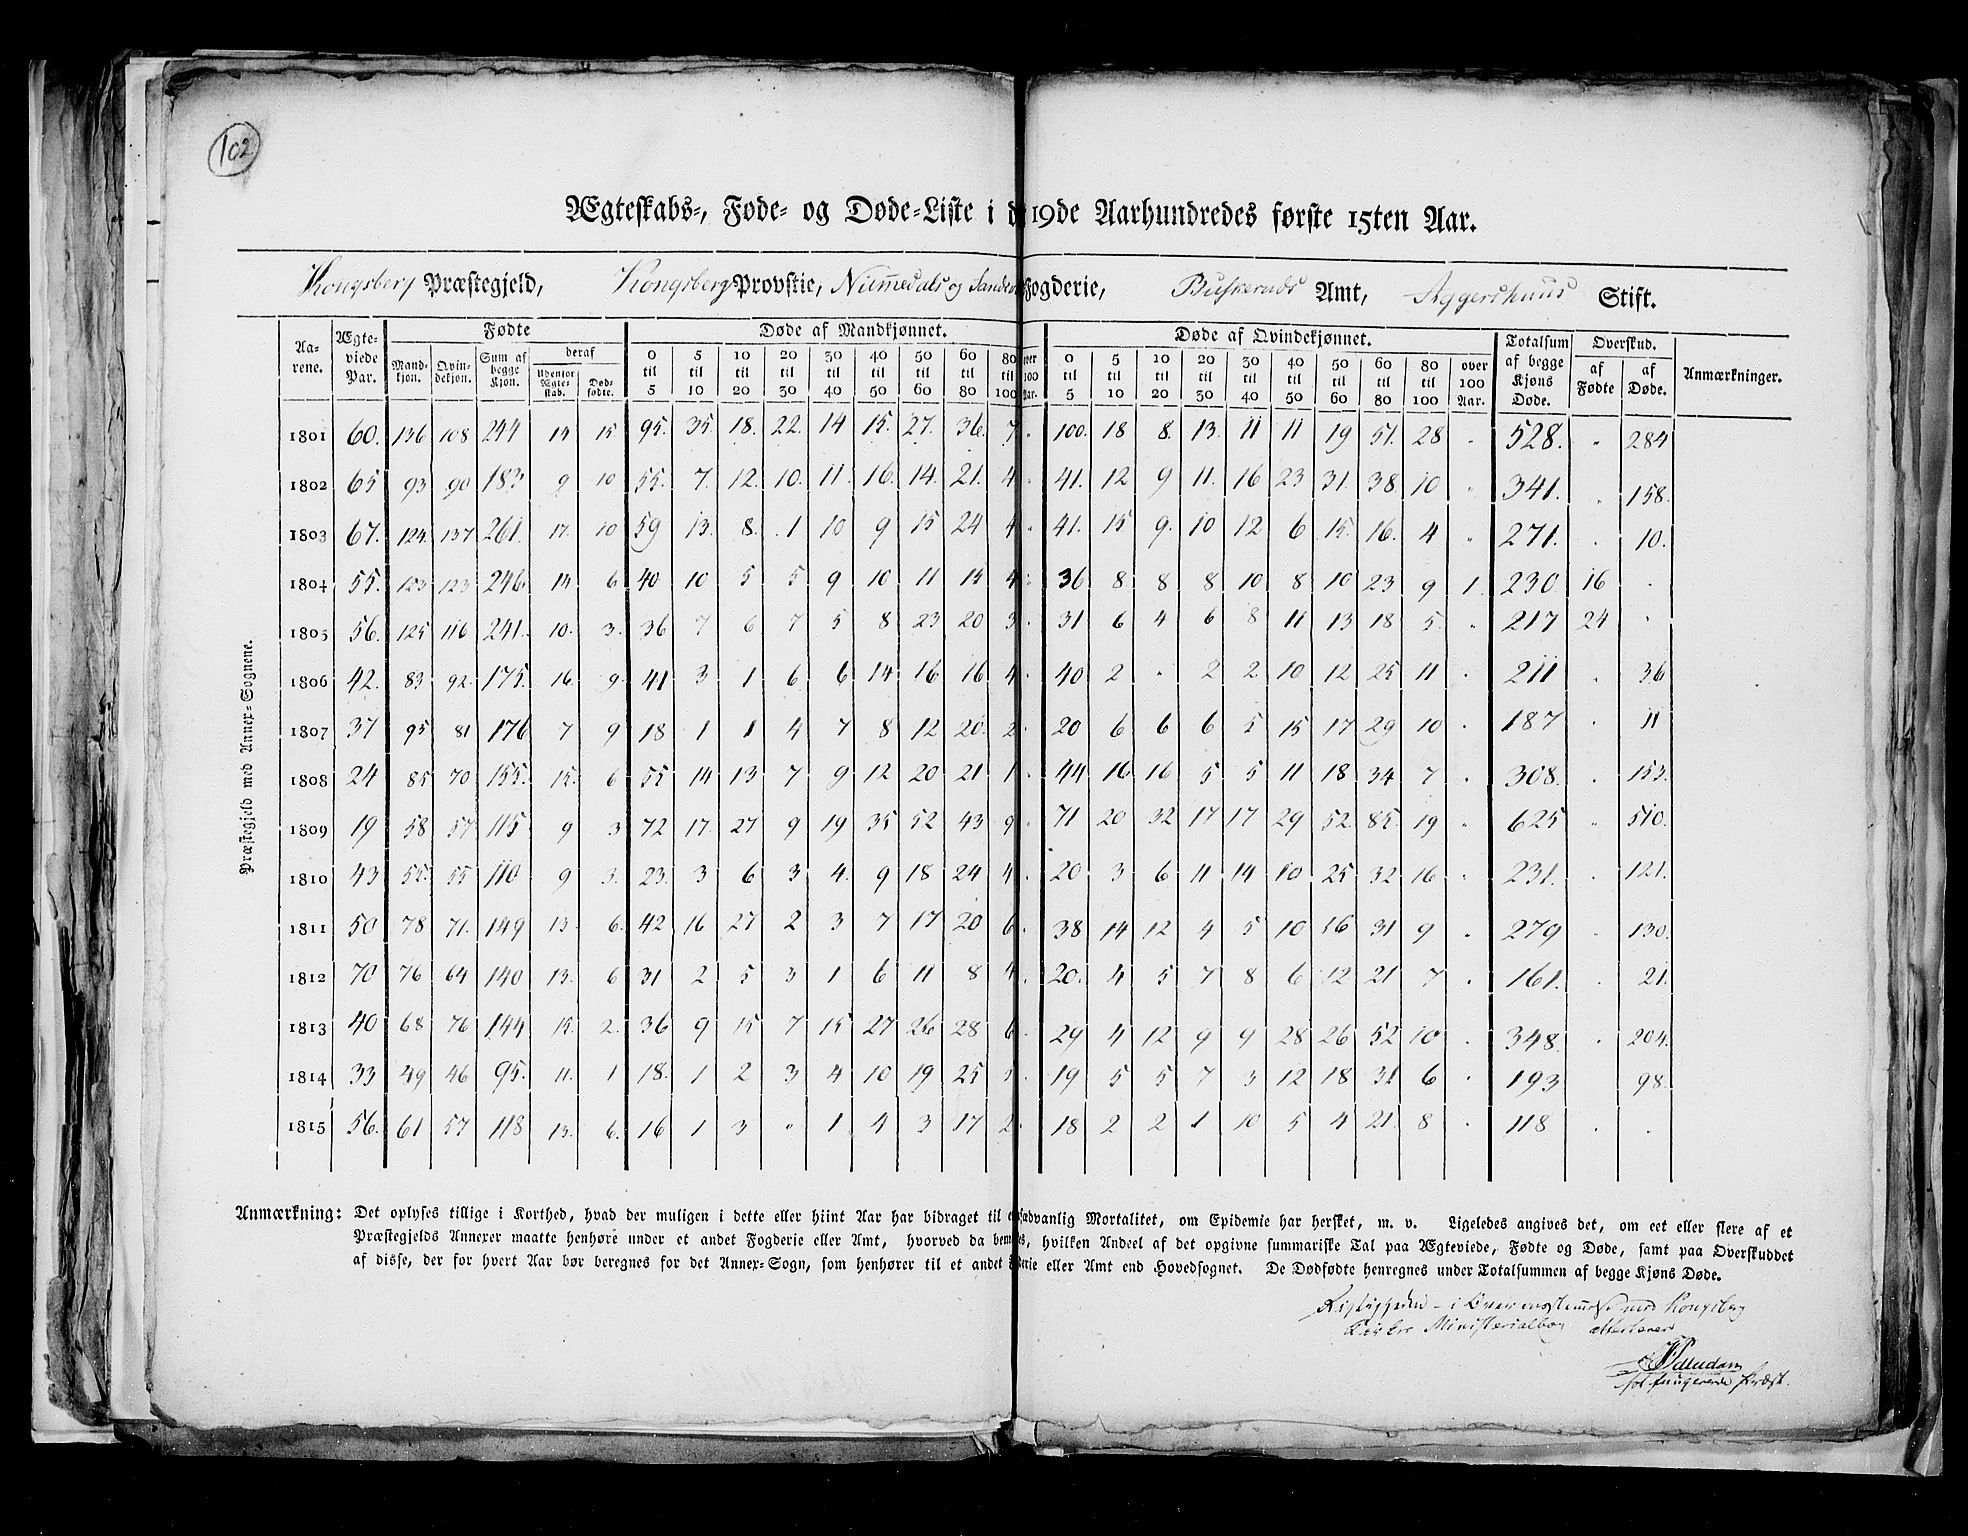 102
Ægteskabs-, Føde- og Døde-Liste i d 19de Aarhundredes første 15ten Aar.
Kongsberg Præstegjeld, Kongsberg Provstie, Numedals og Sandsv Fogderie, Buskeruds Amt, Aggershuus Stift.
Aarene. Ægteviede Par. Fødte Døde af Mandkjønnet. Døde af Qvindekjønnet. Totalsum af begge Kjøns Døde. Overskud. Anmærkninger.
Mandkjøn. Qvindekjøn. Sum af begge Kjøn. deraf Udenfor Ægteskab. Dødfødte. 0 til 5 5 til 10 10 til 20 20 til 30 30 til 40 40 til 50 50 til 60 60 til 80 80 til 100 over 100 Aar. 0 til 5 5 til 10 10 til 20 20 til 30 30 til 40 40 til 50 50 til 60 60 til 80 80 til 100 over 100 Aar. af Fødte af Døde.
Præstegjeld med Annex-Sognene.
1801 60. 136 108 244 14 15 95. 35. 18. 22. 14 15. 27. 36. 7 " 100. 18 8. 13. 11 11 19 51. 28 " 528. " 284
1802 65 93 90 183 9 10 55. 7. 12. 10. 11. 16. 14. 21. 4 " 41. 12 9 11. 16 23 31. 38. 10 " 341. " 158.
1803 67. 124. 137 261. 17. 10 59 13. 8. 1 10 9 15 24 4 " 41. 15 9. 10 12 6 15. 16. 4 " 271. " 10.
1804 55. 123 123 246 14 6 40 10 5 5 9 10 11 14 4 " 36 8 8 8 10 8 10 23 9 1. 230 16 "
1805 56. 125 116 241. 10. 3. 36 7 6 7 5 8 23 20 3 " 31 6 4 6 8 11 13 18 5. " 217 24 "
1806 42. 83 92. 175. 16. 9. 41 3 1 6 6 14 16 16 4 " 40 2 " 2 2 10 12 25 11 " 211 " 36
1807 37 95 81 176 7 9 18 1 1 4 7 8 12 20. 2 " 20 6 6 6 5 15 17 29 10 " 187 " 11
1808 24 85 70 155. 15. 6 55 14 13 7 9 12 20 21 1 " 44 16 16 5 5 11 18 34 7 " 308. " 153.
1809 19 58 57 115 9 3 72 17. 27 9 19 35 52 43 9 " 71 20 32 17 17 29 52. 85. 19 " 625 " 510.
1810 43 55. 55 110 9 3. 23. 3 6 3 4. 9 18 24 4 " 20 3 6 11 14 10 25 32 16 " 231. " 121.
1811 50 78 71. 149 13. 6. 42 16 27 2 3 7 17 20 6 " 38 14 12 4 5 10 16 31 9 " 279 " 130.
1812 70 76 64 140 13. 6 31 2 5 3 1 6 11 8 4 " 20. 4 5 7 8 6 12 21 7 " 161. " 21.
1813 40 68 76 144 15. 2. 36 9 15 7 15 27 26 28 6 " 29 4 12 9 9 28 26 52 10 " 348. " 204.
1814 33 49 46 95. 11. 1 18. 1 2 3 4 10 19 25 5 " 19 5 5 7 3 12 18 31 6 " 193 98.
1815 56. 61 57 118 13. 6. 16 1 3 " 1 4 3 17 2 " 18 2 2 1 10 5 4 21. 8 " 118 " "
Anmærkning: Det oplyses tillige i Korthed, hvad der muligen i dette eller hiint Aar har bidraget til sædvanlig Mortalitet, om Epidemie har hersket, m. v. Ligeledes angives det, om eet eller flere af et
Præstegjelds Annexer maatte henhøre under et andet Fogderie eller Amt, hvorved da bem s, hvilken Andeel af det opgivne summariske Tal paa Ægteviede, Fødte og Døde, samt paa Overskuddet
af disse, der for hvert Aar bør beregnes for det Annex-Sogn, som henhører til et andet erie eller Amt end Hovedsognet. De Dødfødte henregnes under Totalsummen af begge Kjøns Døde.
Rigtigheden i Overeenstemmelse med Kongsberg
Kirkes Ministerialbog attesterer
fungerende Præst.